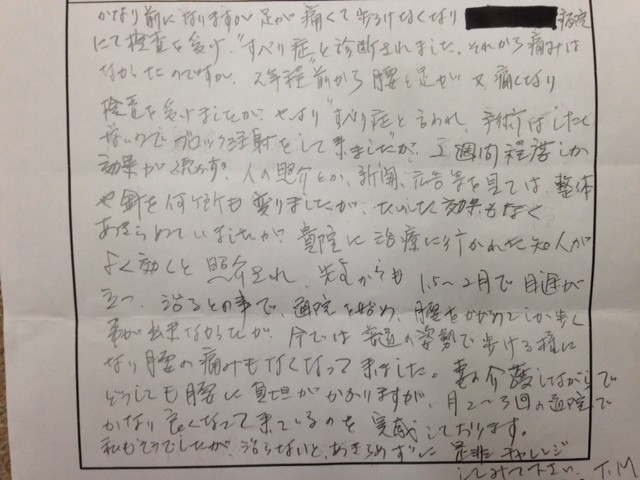 かなり前になりますが足が痛くて歩けなくなり 病院
にて検査を受け、"すべり症"と診断されました。それから痛みは
なかったのですが、2年程前から腰と足が又痛くなり
検査を受けましたが、やはり"すべり症と言われ、手術はしたく
ないのでブロック注射をして来ましたが、2週間程度しか
効果が続かず。人の照介とか、新聞、広告等を見ては、整体
や針を何ケ所も変りましたが、たいした効果もなく
あきらめていましたが、貴院に治療に行かれた知人が
よく効くと照介され、先生からも1.5~2月で目途が
立つ、治るとの事で、通院を始め、腰をかがめてしか歩く
事が出来なかったが、今では普通の姿勢で歩ける様に
なり腰の痛みもなくなって来ました。妻の介護しながらで
どうしても腰に負担がかかりますが、月2~3回の通院で
かなり良くなって来ているのを実感しております。
私もそうでしたが、治らないと、あきらめずに是非チャレンジ
してみて下さい。T.M